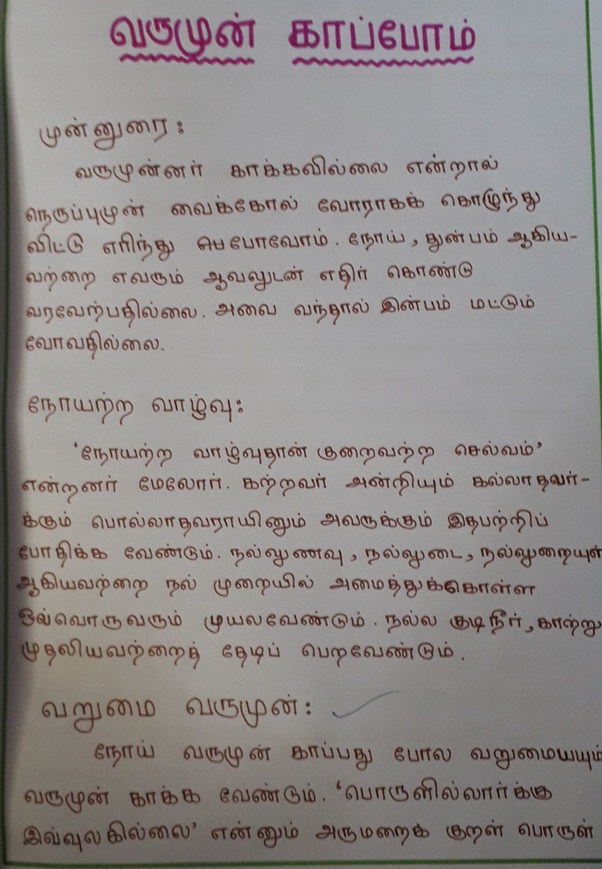 வருமுன் காப்போம்
முன்னுரை :
வருமுன்னர் காக்கவில்லை என்றால்
நெருப்புமுன் வைக்கோல் வோராகக் கொழுந்து
விட்டு எரிந்து போவோம். நோய், துன்பம் ஆகிய-
வற்றை எவரும் ஆவலுடன் எதிர் கொண்டு
வரவேற்பதில்லை. அவை வந்தால் இன்பம் மட்டும்
வோவதில்லை.
நோயற்ற வாழ்வு:
'நோயற்ற வாழ்வுதான் குறைவற்ற செல்வம்'
என்றனர் மேலோர். கற்றவர் அன்றியும் கல்லாதவர்-
க்கும் பொல்லாதவராயினும் அவருக்கும் இதபற்றிப்
போதிக்க வேண்டும். நல்லுணவு, நல்லுடை, நல்லுறையுள்
ஆகியவற்றை நல் முறையில் அமைத்துக்கொள்ள
ஒவ்வொருவரும் முயலவேண்டும். நல்ல குடிநீர், காற்று
முதலியவற்றைத் தேடிப் பெறவேண்டும்.
வறுமை வருமுன் :
நோய் வருமுன் காப்பது போல வறுமையயும்
வருமுன் காக்க வேண்டும். 'பொருளில்லார்க்கு
இவ்வுலகில்லை' என்னும் அருமறைக் குறள் பொருள்